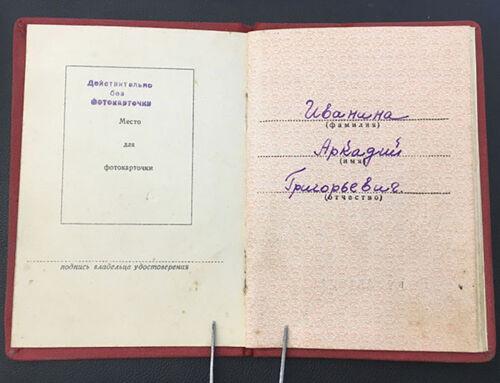 Действительно
без
фотокарточки
Место
для
фотокарточки
подпись владельца удостоверения
Иванина
(фамилия)
Аркадий
(имя)
Григорьевич
(отчество)